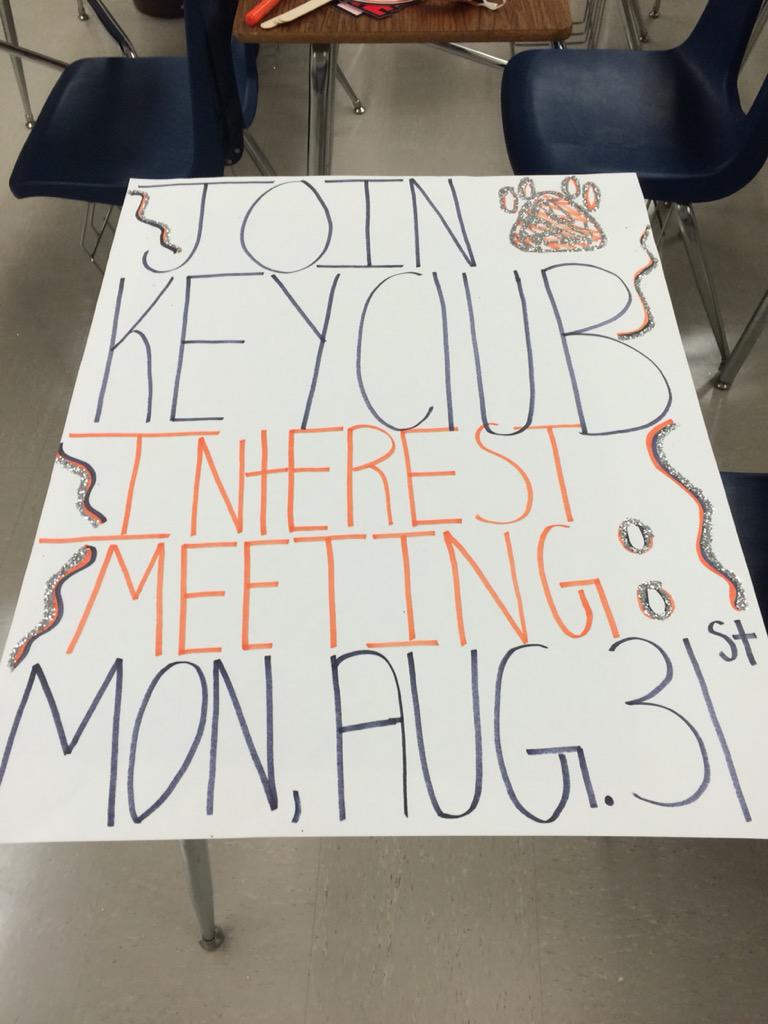 JOIN
KEYClUB
INtEREST
MEETING:
MON, AUG. 31st